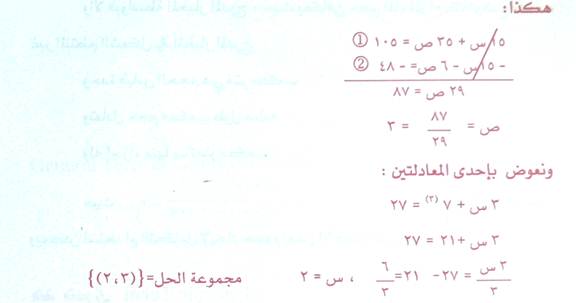 هكذا:
١٥س + ٣٥ ص = ١٠٥ ①
- ١٥س - ٦ ص= - ٤٨ ②
٢٩ ص = ٨٧
ص = ٨٧/٢٩ = ٣
ونعوض بإحدى المعادلتين :
٣ س + ٧ (٣) = ٢٧
٣ س + ٢١ = ٢٧
٣ س/٣ = ٢٧ - ٢١= ٦/٣ ، س = ٢ مجموعة الحل={(٢،٣)}